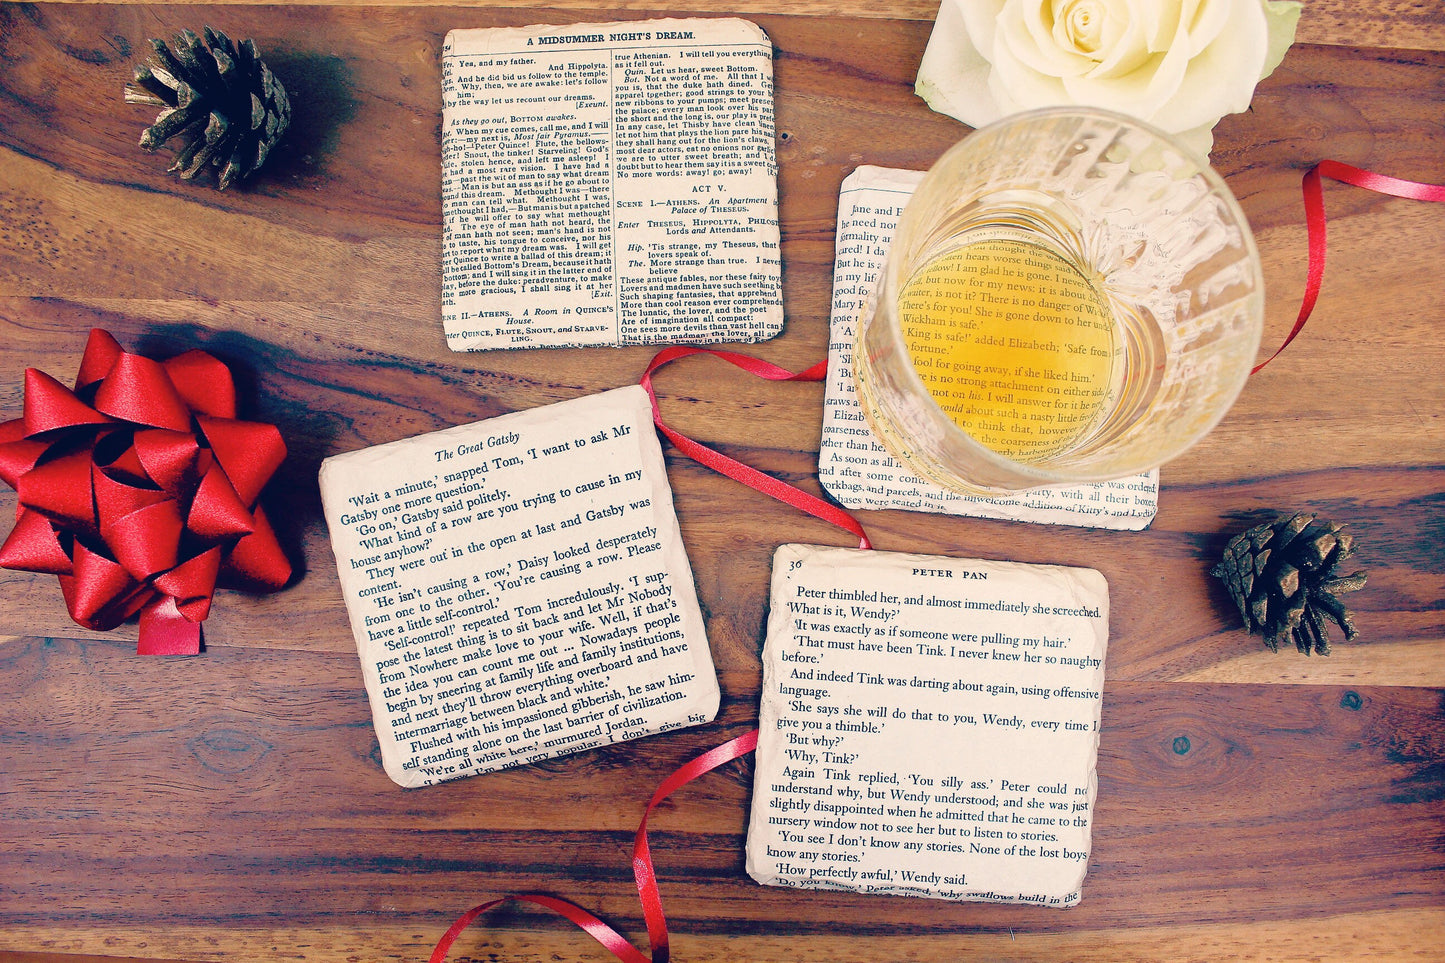 A MIDSUMMER NIGHT'S DREAM.
Yea, and my father.
And Hippolyta.
And he did bid us follow to the temple.
Why, then, we are awake: let's follow
him;
by the way let us recount our dreams.
[Exeunt.
As they go out, BOTTOM awakes.
When my cue comes, call me, and I will
my next is, Most fair Pyramus.—
Peter Quince! Flute, the bellows-
Snout, the tinker! Starveling! God's
stolen hence, and left me asleep! I
had a most rare vision. I have had a
past the wit of man to say what dream
Man is but an ass if he go about to
this dream. Methought I was—there
man can tell what. Methought I was,
methought I had,—But man is but a patched
if he will offer to say what methought
The eye of man hath not heard, the
of man hath not seen; man's hand is not
to taste, his tongue to conceive, nor his
to report what my dream was. I will get
Quince to write a ballad of this dream; it
be called Bottom's Dream, because it hath
bottom; and I will sing it in the latter end of
play, before the duke: peradventure, to make
the more gracious, I shall sing it at her
[Exit.
II.—ATHENS. A Room in QUINCE'S
House.
QUINCE, FLUTE, SNOUT, and STARVE-
LING.
true Athenian. I will tell you everything,
as it fell out.
Quin. Let us hear, sweet Bottom.
Bot. Not a word of me. All that I
you is, that the duke hath dined.
apparel together; good strings to your
new ribbons to your pumps; meet
the palace; every man look over his
the short and the long is, our play is
In any case, let Thisby have clean
let not him that plays the lion pare his
they shall hang out for the lion's claws.
most dear actors, eat no onions nor
we are to utter sweet breath; and I
doubt but to hear them say it is a sweet
No more words: away! go; away!
ACT V.
SCENE I.—ATHENS. An Apartment
Palace of THESEUS.
Enter THESEUS, HIPPOLYTA,
Lords and Attendants.
Hip. 'Tis strange, my Theseus, that
lovers speak of.
The. More strange than true. I never
believe
These antique fables, nor these fairy toys
Lovers and madmen have such seething
Such shaping fantasies, that apprehend
More than cool reason ever comprehends
The lunatic, the lover, and the poet
Are of imagination all compact:
One sees more devils than vast hell can
That is the madman: the lover, all as
Jane and
he need not
formality
I
But he is a
in my life
good for
Mary
Elizab
coarseness
other than her
As soon as all
and after some
workbags, and parcels, and the unwelcome addition of Kitty's and Lydia
chases were seated in it.
often hears worse things said
fellow! I am glad he is gone. I never
but now for my news: it is about
waiter, is it not? There is no danger of
There's for you! She is gone down to her
Wickham is safe.'
King is safe!' added Elizabeth; 'Safe from
fortune.'
fool for going away, if she liked him.'
is no strong attachment on either side
not on his. I will answer for it he
could about such a nasty little
to think that, however
the coarseness of
party, with all their boxes
was ordered
The Great Gatsby
'Wait a minute,' snapped Tom, 'I want to ask Mr
Gatsby one more question.'
'Go on,' Gatsby said politely.
'What kind of a row are you trying to cause in my
house anyhow?'
They were out in the open at last and Gatsby was
content.
'He isn't causing a row,' Daisy looked desperately
from one to the other. 'You're causing a row. Please
have a little self-control.'
'Self-control!' repeated Tom incredulously. 'I sup-
pose the latest thing is to sit back and let Mr Nobody
from Nowhere make love to your wife. Well, if that's
the idea you can count me out ... Nowadays people
begin by sneering at family life and family institutions,
and next they'll throw everything overboard and have
intermarriage between black and white.'
Flushed with his impassioned gibberish, he saw him-
self standing alone on the last barrier of civilization.
'We're all white here,' murmured Jordan.
'I know I'm not very popular. I don't give big
36
PETER PAN
Peter thimbled her, and almost immediately she screeched.
'What is it, Wendy?'
'It was exactly as if someone were pulling my hair.'
'That must have been Tink. I never knew her so naughty
before.'
And indeed Tink was darting about again, using offensive
language.
'She says she will do that to you, Wendy, every time I
give you a thimble.'
'But why?'
'Why, Tink?'
Again Tink replied, 'You silly ass.' Peter could no
understand why, but Wendy understood; and she was just
slightly disappointed when he admitted that he came to the
nursery window not to see her but to listen to stories.
'You see I don't know any stories. None of the lost boys
know any stories.'
'How perfectly awful,' Wendy said.
'Do you know,' Peter asked, 'why swallows build in the